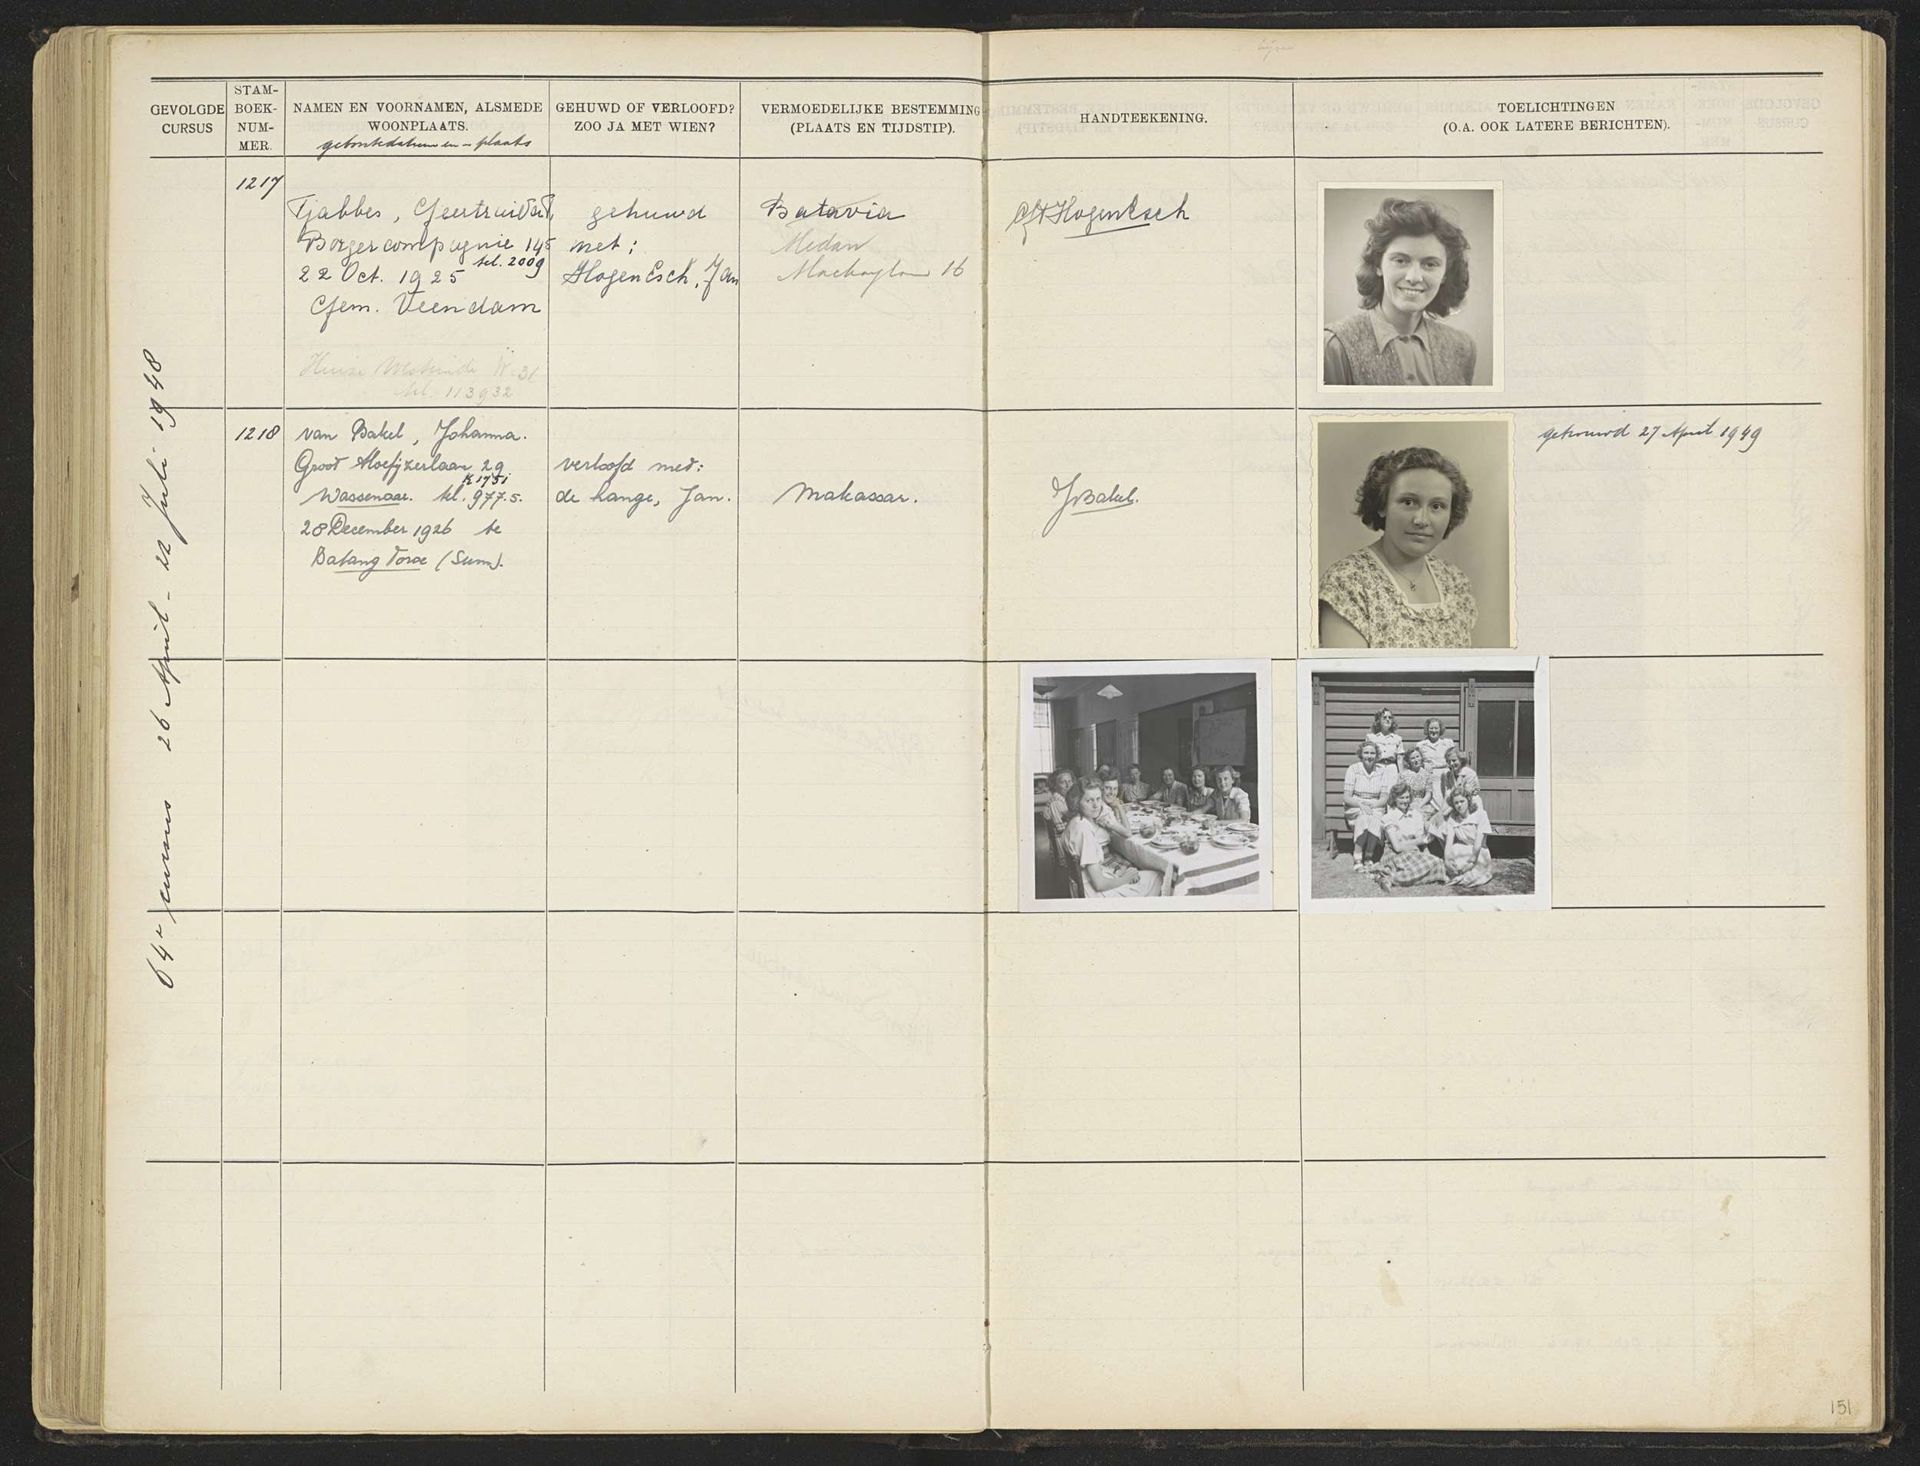 GEVOLGDE
CURSUS
STAM-
BOEK-
NUM-
MER.
NAMEN EN VOORNAMEN, ALSMEDE
WOONPLAATS.
geboortedatum en - plaats
GEHUWD OF VERLOOFD?
ZOO JA MET WIEN?
VERMOEDELIJKE BESTEMMING
(PLAATS EN TIJDSTIP).
HANDTEEKENING.
TOELICHTINGEN
(O.A. OOK LATERE BERICHTEN).
64e cursus 26 April - 22 Juli 1948
1217
Tjabbes, Geertruida H,
Borgercompagnie 145
tel. 2009
22 Oct. 1925
Gem. Veendam
tel. 113932
gehuwd
met:
HogenEsch, Jan
Batavia
Medan
16
GHHogenEsch
1218
van Bakel, Johanna.
Groot Hoefijzerlaan 29
K1751
Wassenaar. tel. 977.5.
28 December 1926 te
Batang Toroe (Sum).
verloofd met:
de Lange, Jan.
Makassar.
JvBakel.
getrouwd 27 April 1949
151